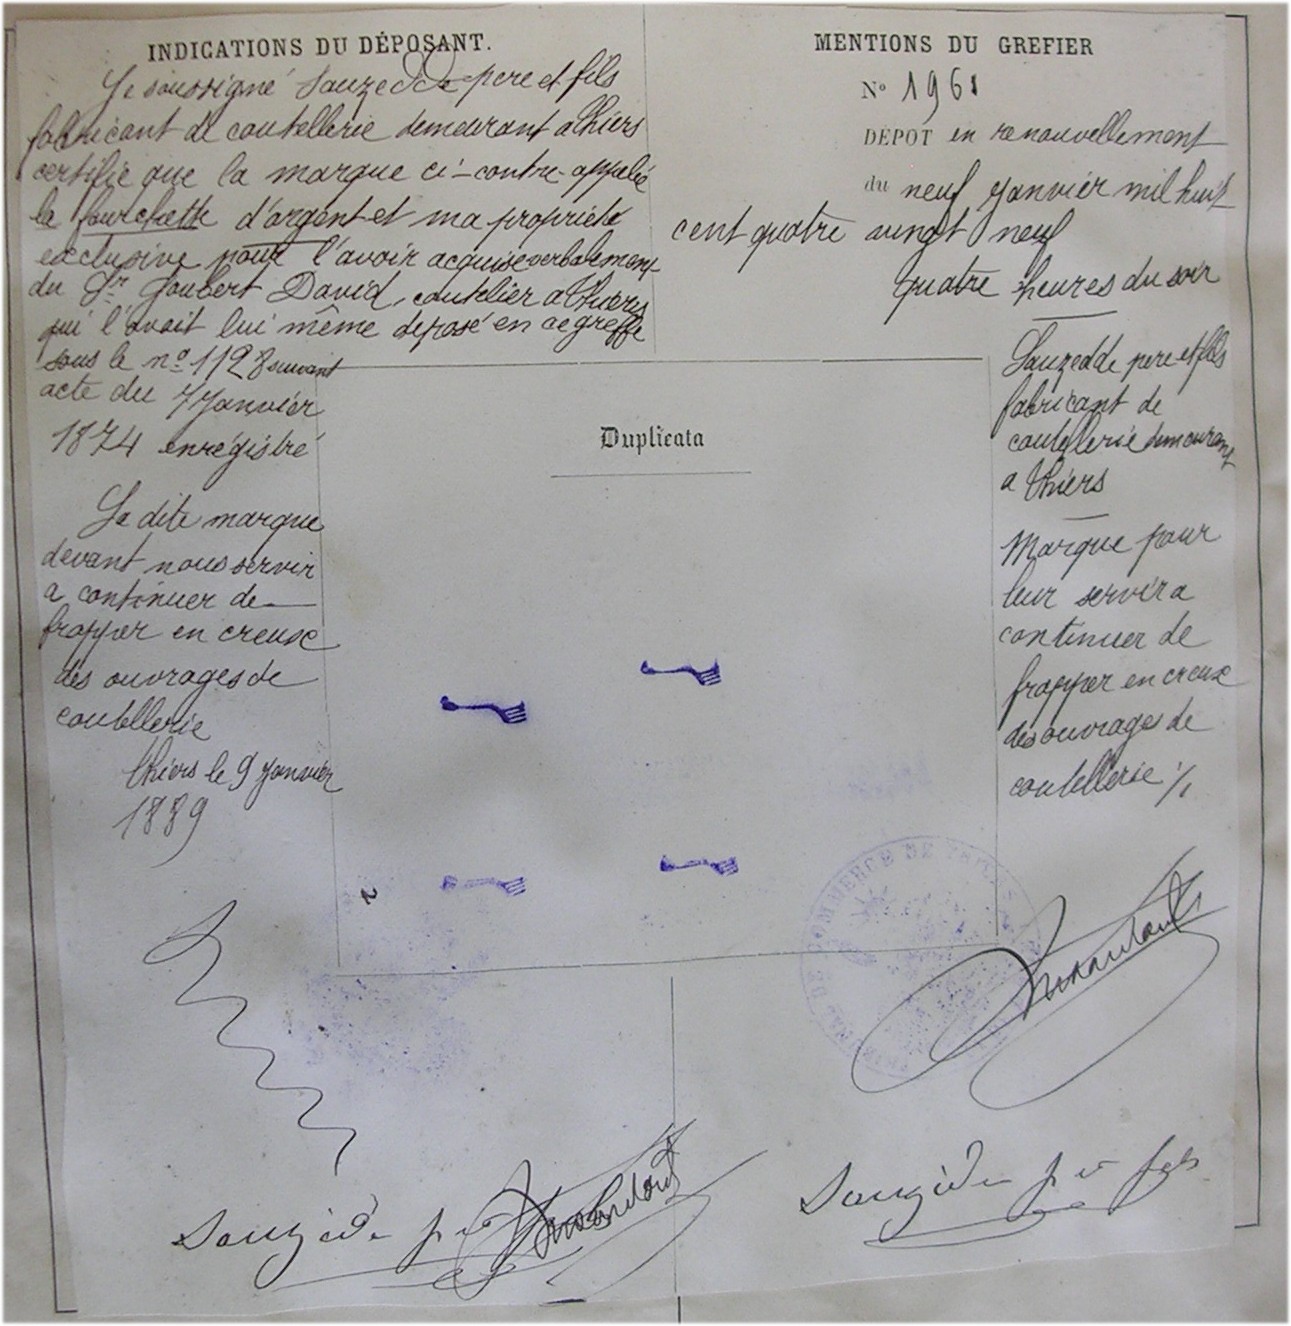 INDICATIONS DU DÉPOSANT.
Je soussigné Sauzedde pere et fils
fabricant de coutellerie demeurant a thiers
certifie que la marque ci-contre appelée
la fourchette d'argent et ma propriété
exclusive pour l'avoir acquise verbalement
du Sr Joubert David, coutelier a thiers
qui l'avait lui même deposé en ce greffe
sous le n.o 1128 suivant
acte du 7 Janvier
1874 enregistré
La dite marque
devant nous servir
a continuer de
frapper en creuse
des ouvrages de
coutellerie
thiers le 9 Janvier
1889
MENTIONS DU GREFIER
No 1961
DÉPOT en renouvellement
du neuf janvier mil huit
cent quatre vingt neuf
quatre heures du soir
Sauzedde pere et fils
fabricant de
coutellerie demeurant
a thiers
Marque pour
leur servir a
continuer de
frapper en creuse
des ouvrages de
coutellerie
Duplicata
2
TRIBUNAL DE COMMERCE DE THIERS
Sauzède
Sauzède